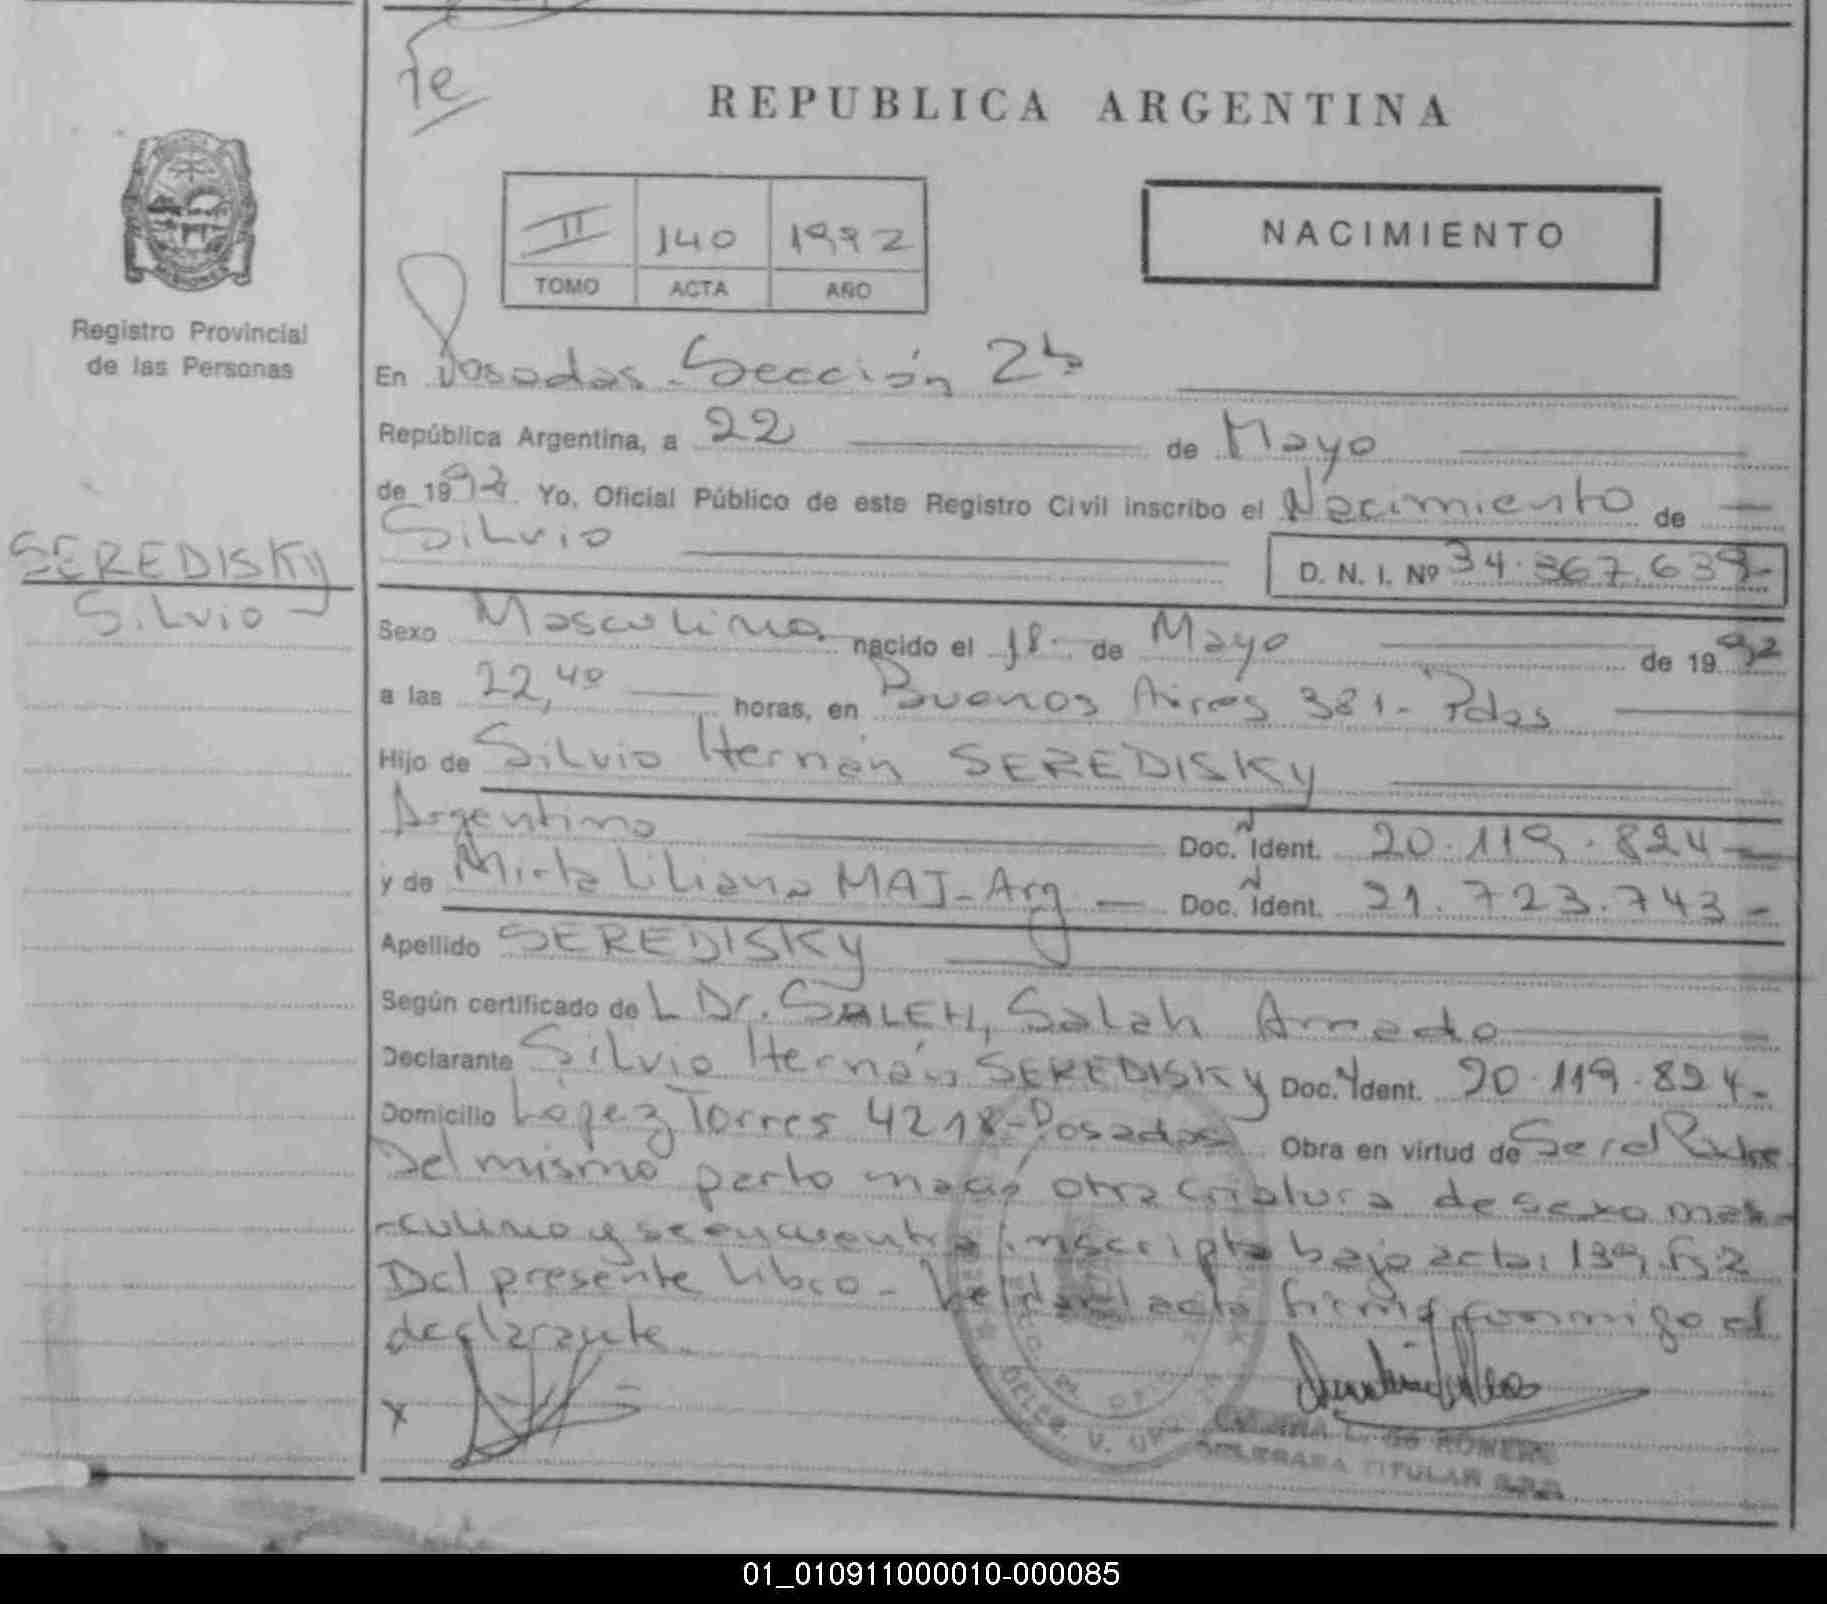 1e
REPUBLICA ARGENTINA
II 140 1992
TOMO ACTA AÑO
NACIMIENTO
Registro Provincial
de las Personas
En Posadas - Sección 2ª
República Argentina, a 22 de Mayo
de 1992. Yo, Oficial Público de este Registro Civil inscribo el Nacimiento de
Silvio
D. N. I. Nº 34.367.639-
SEREDISKY
Silvio
Sexo Masculino nacido el 18 de Mayo de 1992
a las 22,40 horas, en Buenos Aires 381- Pdas
Hijo de Silvio Hernán SEREDISKY
Argentino Doc. Ident. 20.119.824-
y de Mirta Liliana MAJ - Arg - Doc. Ident. 21.723.743-
Apellido SEREDISKY
Según certificado de L Dr. SALEH, Salah Amado
Declarante Silvio Hernán SEREDISKY Doc. Ident. 20.119.824-
Domicilio López Torres 4218 - Posadas Obra en virtud de Ser el Padre
Del mismo parto nació otra criatura de sexo mas-
-culino y se encuentra inscripto bajo acta: 139,
Del presente Libro - Leída el acta firma conmigo el
declarante
X
DELEGADA TITULAR
01_010911000010-000085